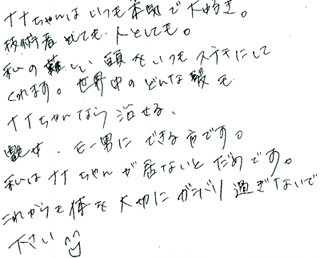 ナナちゃんはいつも本気で大好き。
技術者としても人としても。
私の難しい頭をいつもステキにして
くれます。世界中のどんな髪も
ナナちゃんなら治せる、
モー男にできる方です。
私はナナちゃんが居ないとだめです。
これからも体を大切にガンバリ過ぎないで
下さい